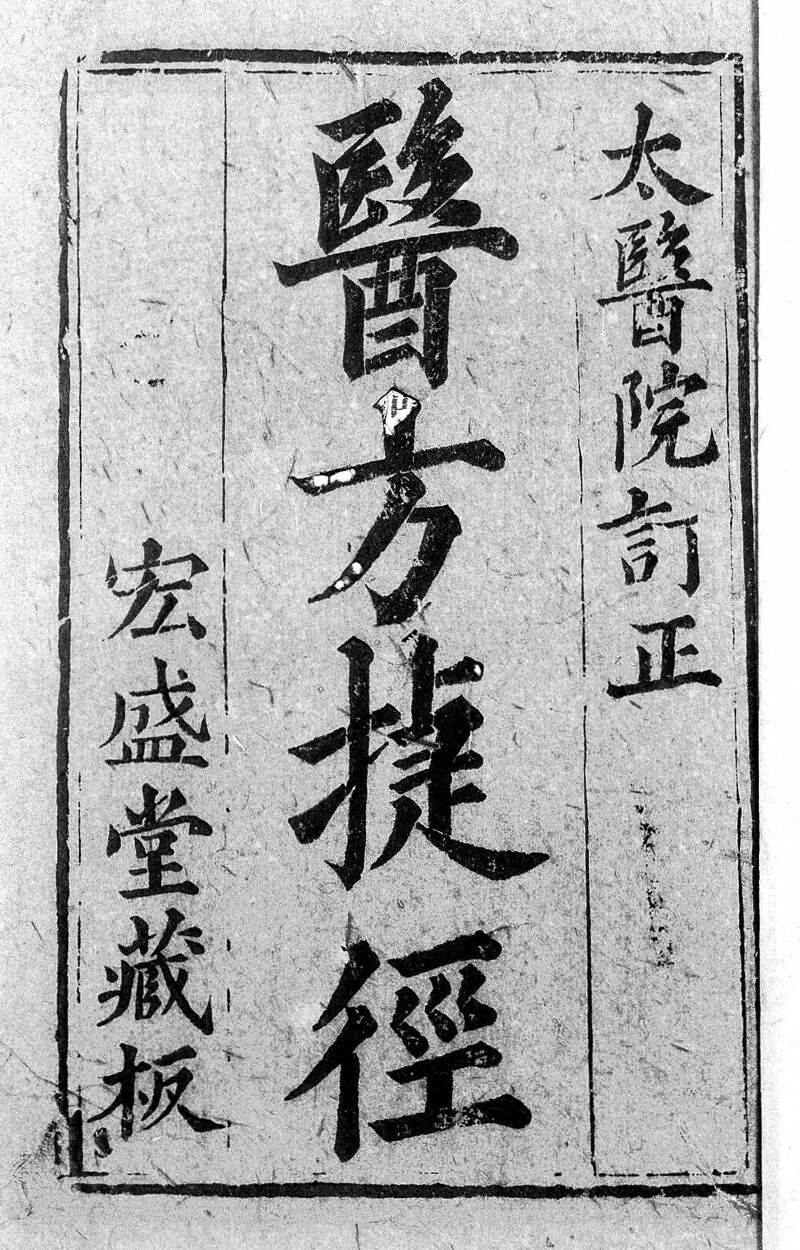 太醫院訂正
醫方捷徑
宏盛堂藏板